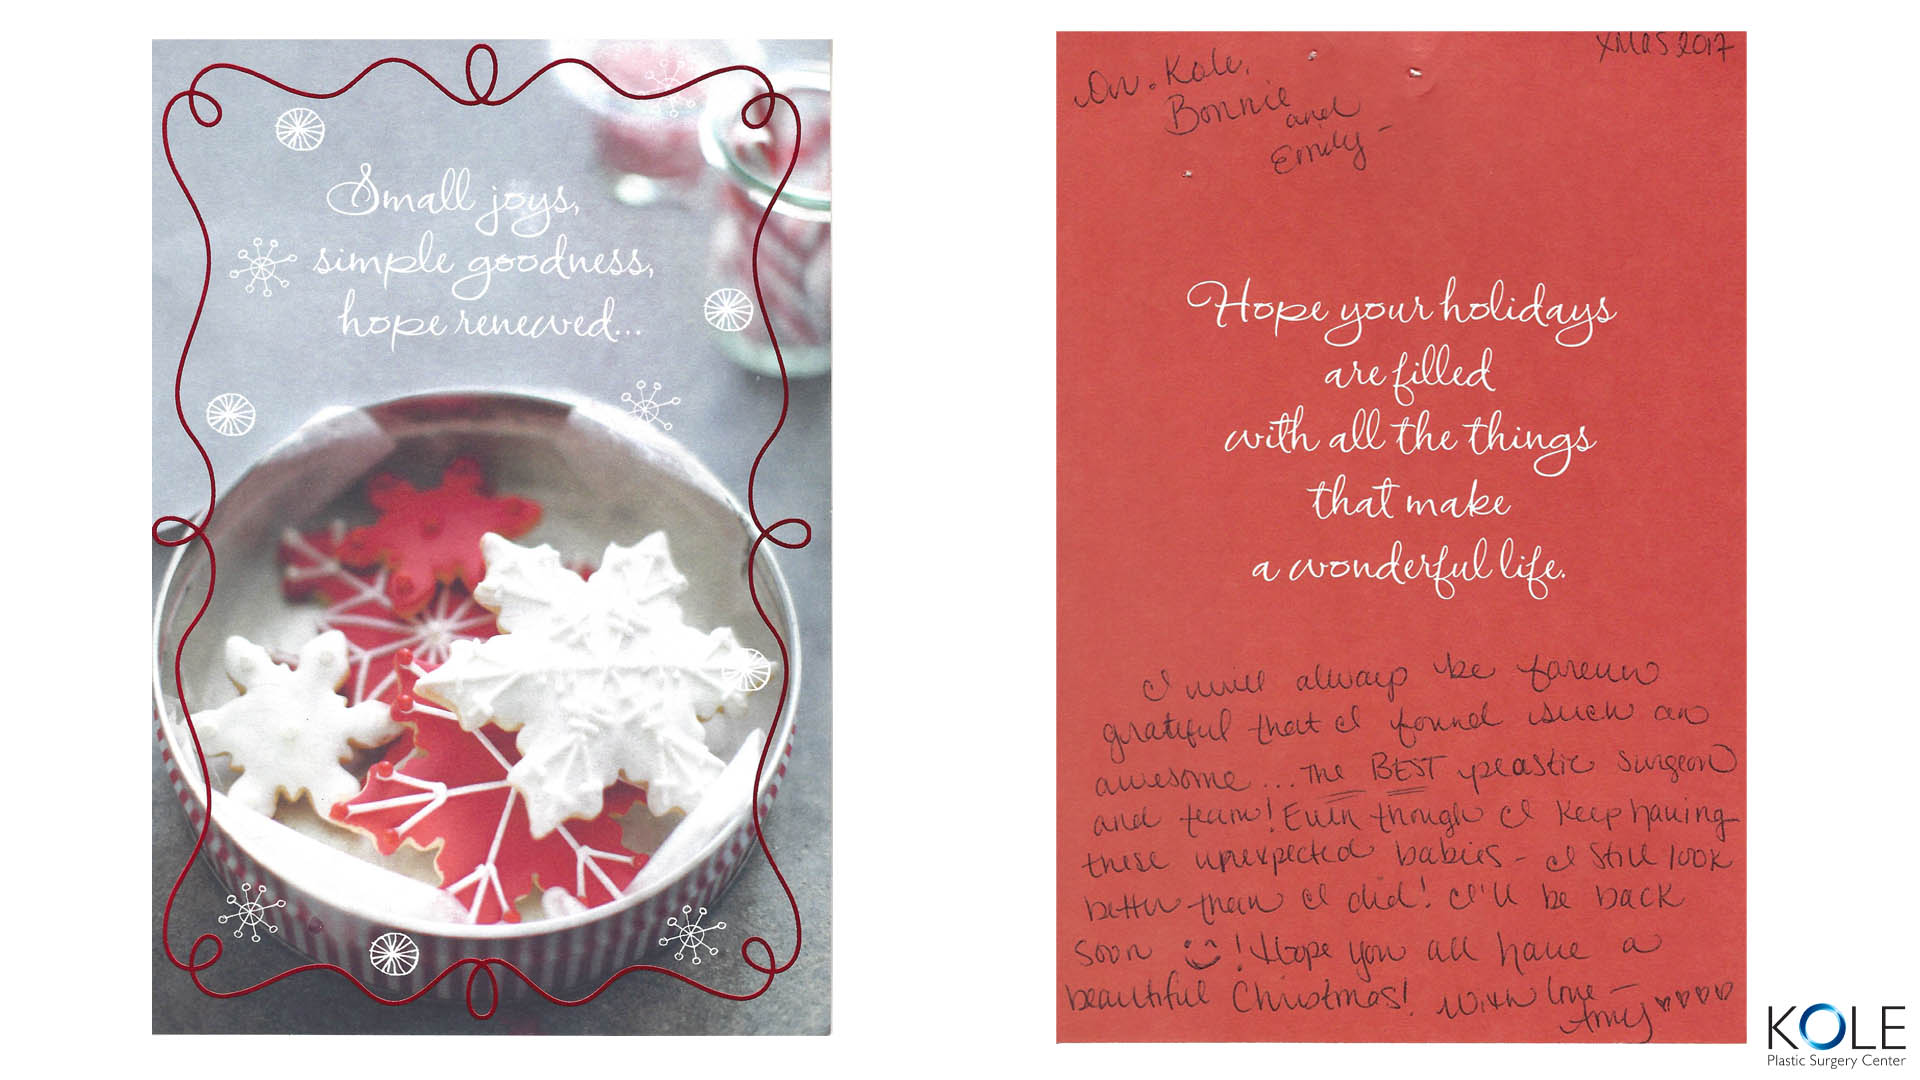 Small joys,
simple goodness,
hope renewed...
XMAS 2017
Dr. Kole,
Bonnie
and
Emily -
Hope your holidays
are filled
with all the things
that make
a wonderful life.
I will always be forever
grateful that I found such an
awesome... THE BEST plastic surgeon
and team! Even though I keep having
these unexpected babies - I still look
better than I did! I'll be back
soon ! Hope you all have a
beautiful Christmas! With love -
Amy
KOLE
Plastic Surgery Center